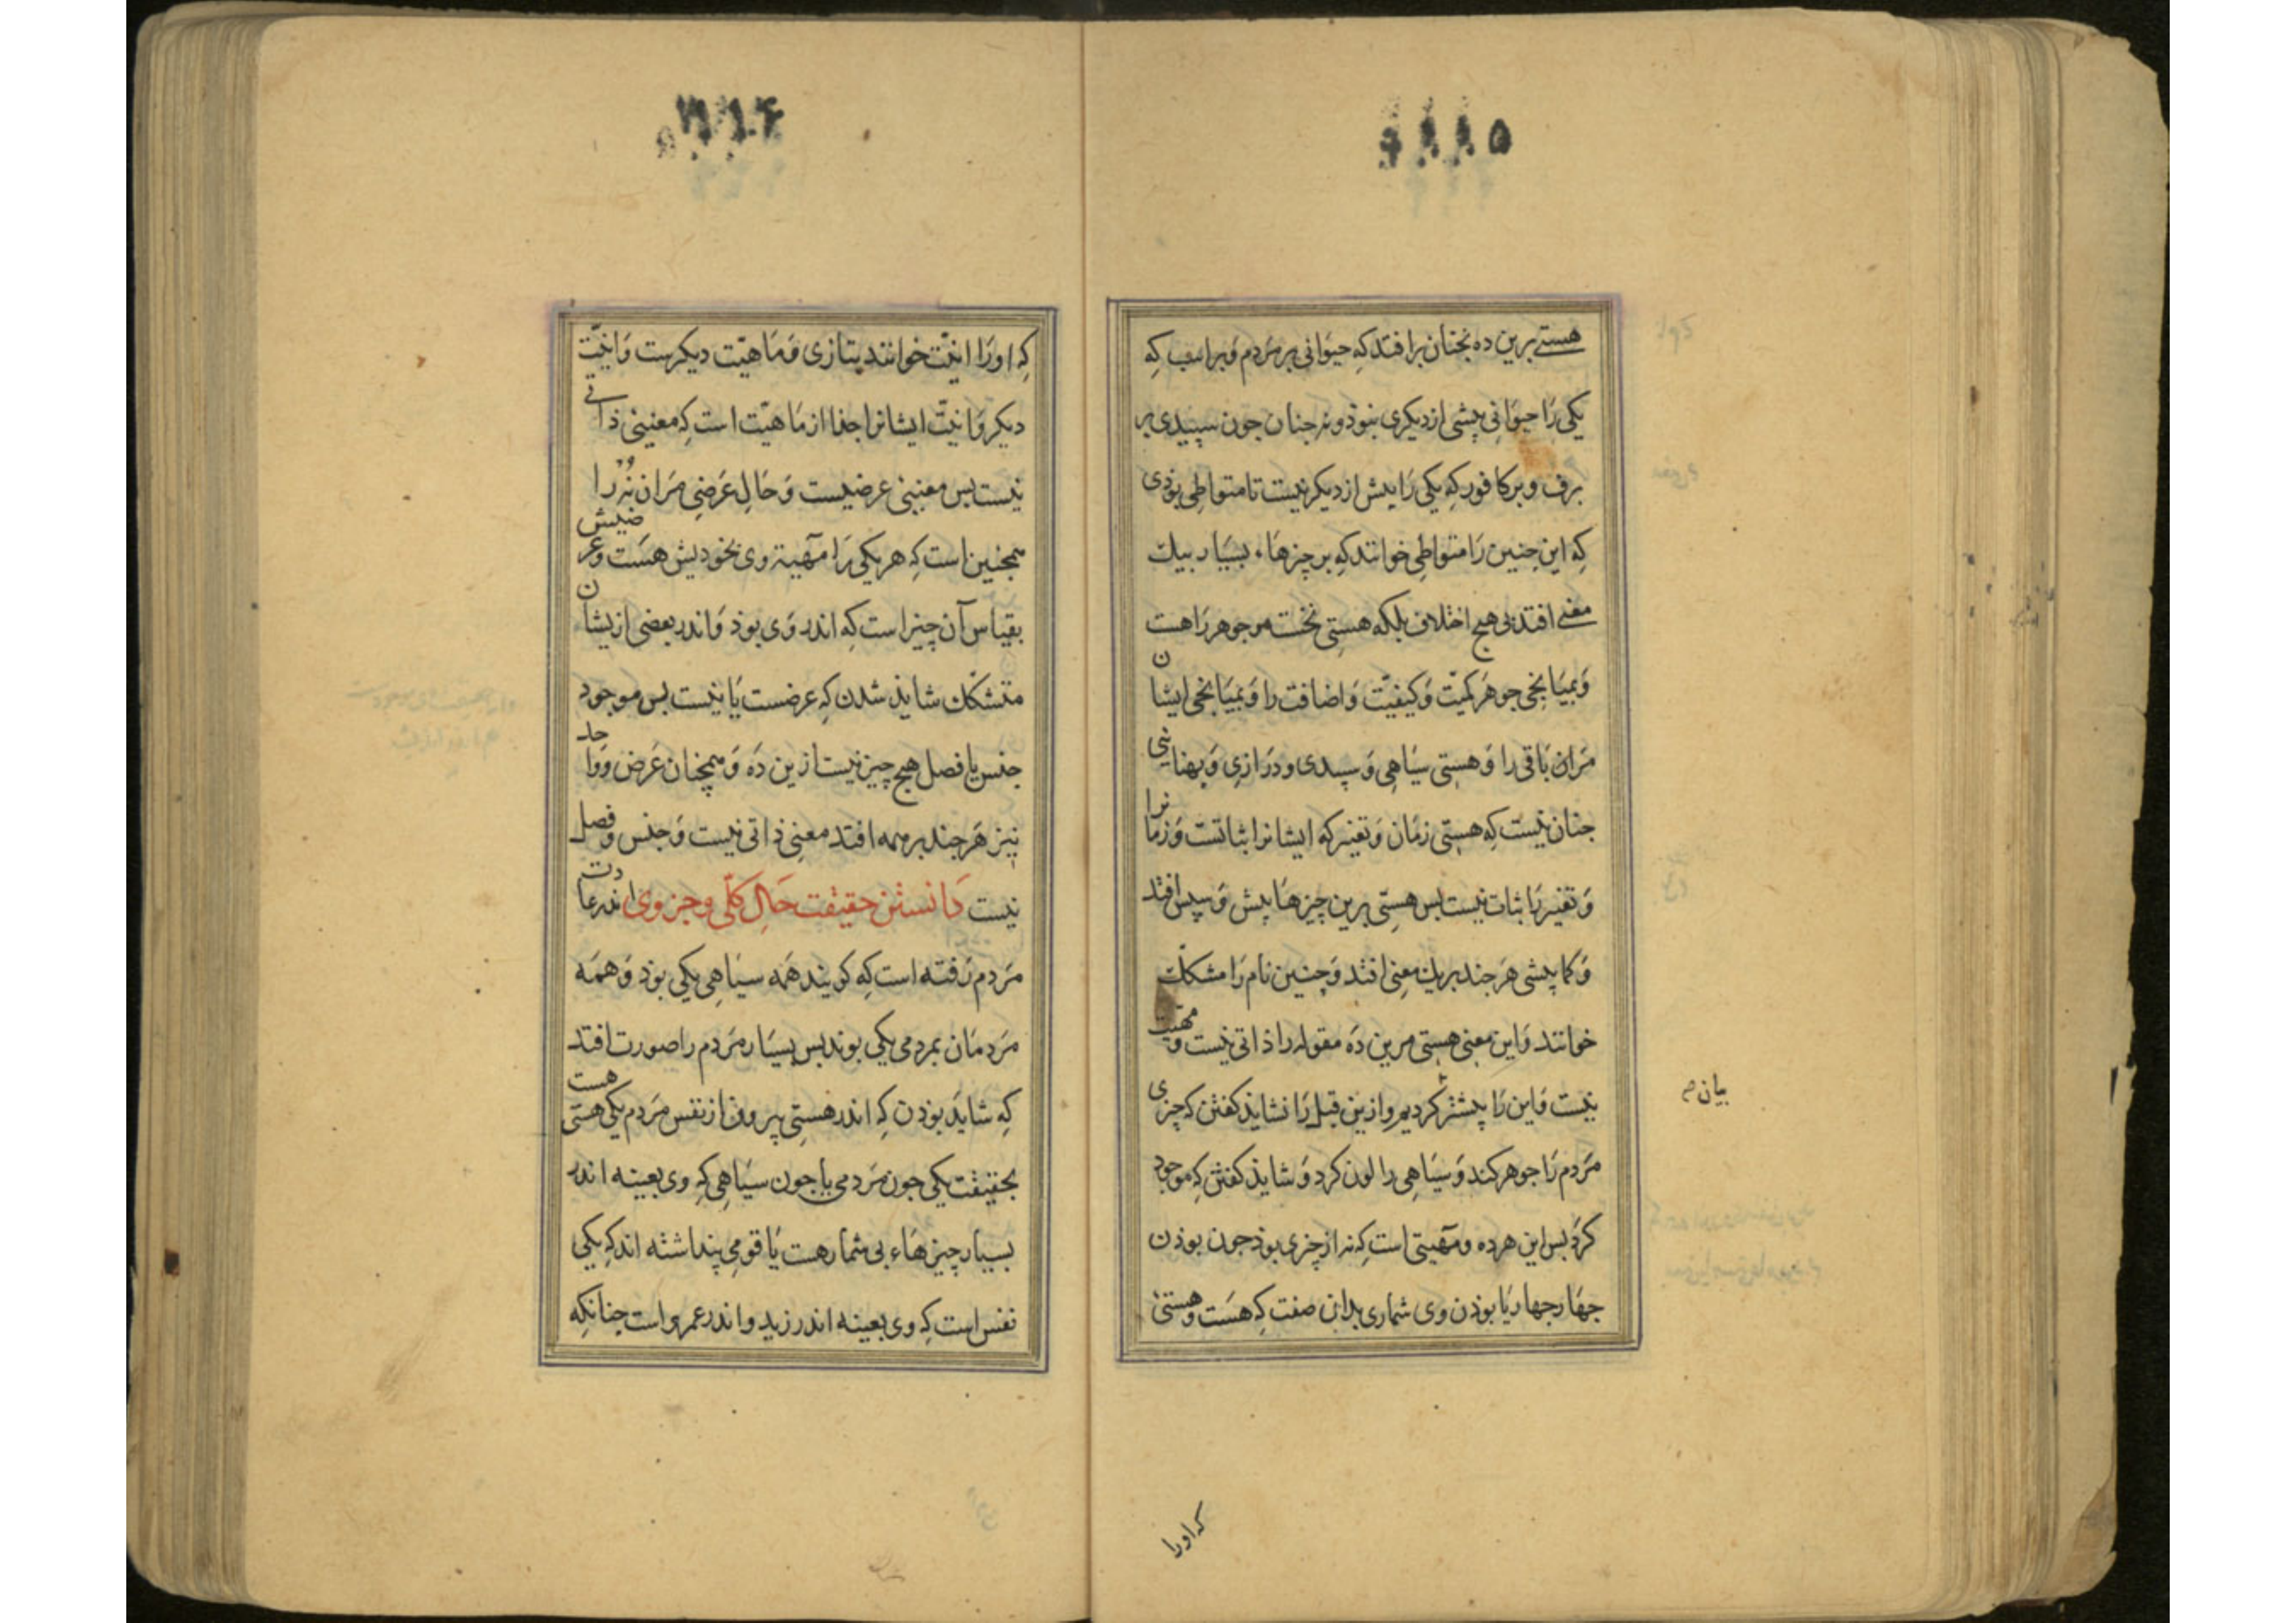 هستی برین ده نچنان برافتد که حیوانی بر مردم و بر اسب که
یکی را حیوانی پیشی از دیگری نبوذ و نه چنان جون سپیدی بر
برف و بر کافور که یکی را پیش از دیگر نیست تا متواطی بوذی
که این چنین را متواطی خوانند که بر چیزهاء بسیار بیک
معنی افتد بی هیچ اختلاف بلکه هستی نخست مر جوهر را هست
و بمیانجی جوهر کمیّت و کیفیّت و اضافت را و بمیانجی ایشان
مران باقی را و هستی سیاهی و سپیدی و درازی و پهنایی
جنان نیست که هستی زمان و تغیر که ایشانرا ثباتست و زمانرا
و تغیر را ثبات نیست بس هستی برین چیزها پیش و سپس افتد
و کما بیشی هر جند بریک معنی افتد و چنین نام را مشکّک
خوانند و این معنی هستی مرین ده مقوله را ذاتی نیست و مهیّت
نیست و این را پیشتر کردیم و ازین قبل را نشاید کفتن که چیزی
بیان م
مردم را جوهر کند و سیاهی را لون کرد و شاید کفتن که موجود
کرد بس این هر ده و مآهیتی است که نه از چیزی بوذ جون بوذن
جهار جهار یا بوذن وی شماری بدان صفت که هست و هستی
که اورا
که او را انیّت خوانند بتازی و ماهیّت دیکرست و انیّت
دیکر و انیّت ایشانرا جذا از ماهیّت است که معنیی ذاتی
نیست بس معنیی عرضیست و حال عرضی مران نه را
همچنین است که هر یکی را مآهیة وی بخودیش هست و عرضیش
بقیاس آن چیز است که اندر وی بوذ و اندر بعضی ازیشان
متشکّک شاید شدن که عرضست یا نیست بس موجود
جنس یا فصل هیچ چیز نیست ازین ده و همچنان عرض و واحد
نیز هر جند بر همه افتد معنی ذاتی نیست و جنس و فصل
نیست دانستن حقیقت حال کلّی و جزوی اندر عادت
مردم رفته است که کویند همه سیاهی یکی بوذ و همه
مردمان بمردمی یکی بوند بس بسیار مردم را صورت افتد
که شاید بوذن که اندر هستی بیرون از نفس مردم یکی هستی هست
بحقیقت یکی جون مردمی یا جون سیاهی که وی بعینه اندر
بسیار چیزهاء بی شمار هست یا قومی پنداشته اند که یکی
نفس است که وی بعینه اندر زید و اندر عمرو است چنانکه